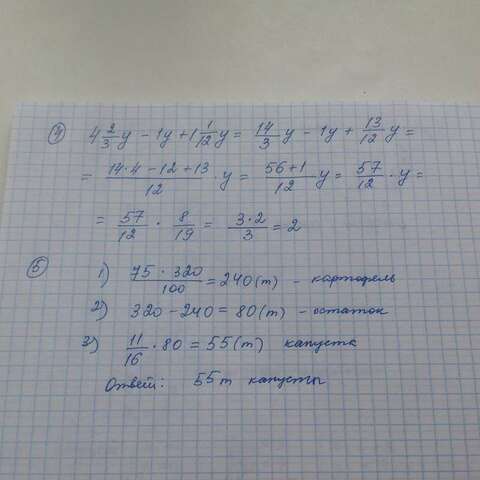 ④ 4 2/3 y - 1y + 1 1/12 y = 14/3 y - 1y + 13/12 y =
= (14·4 - 12 + 13)/12 · y = (56+1)/12 y = 57/12 · y =
= 57/12 · 8/19 = (3·2)/3 = 2
⑤ 1) (75 · 320)/100 = 240(т) - картофель
2) 320 - 240 = 80(т) - остаток
3) 11/16 · 80 = 55(т) капуста
Ответ: 55т капусты